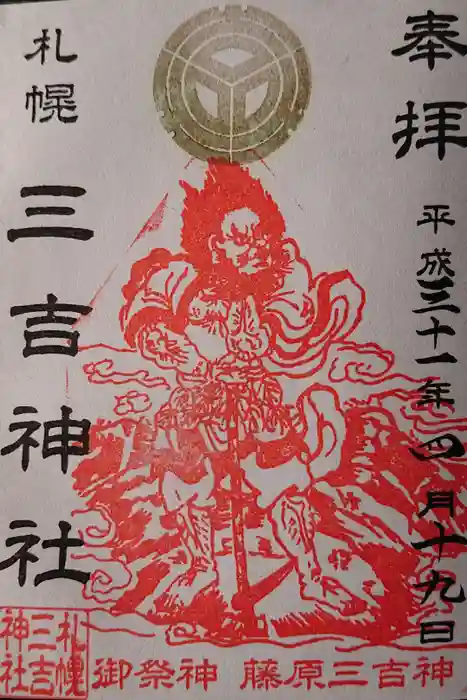 奉拝
平成三十一年四月十九日
札幌
三吉神社
札幌
三吉
神社
御祭神 藤原三吉神